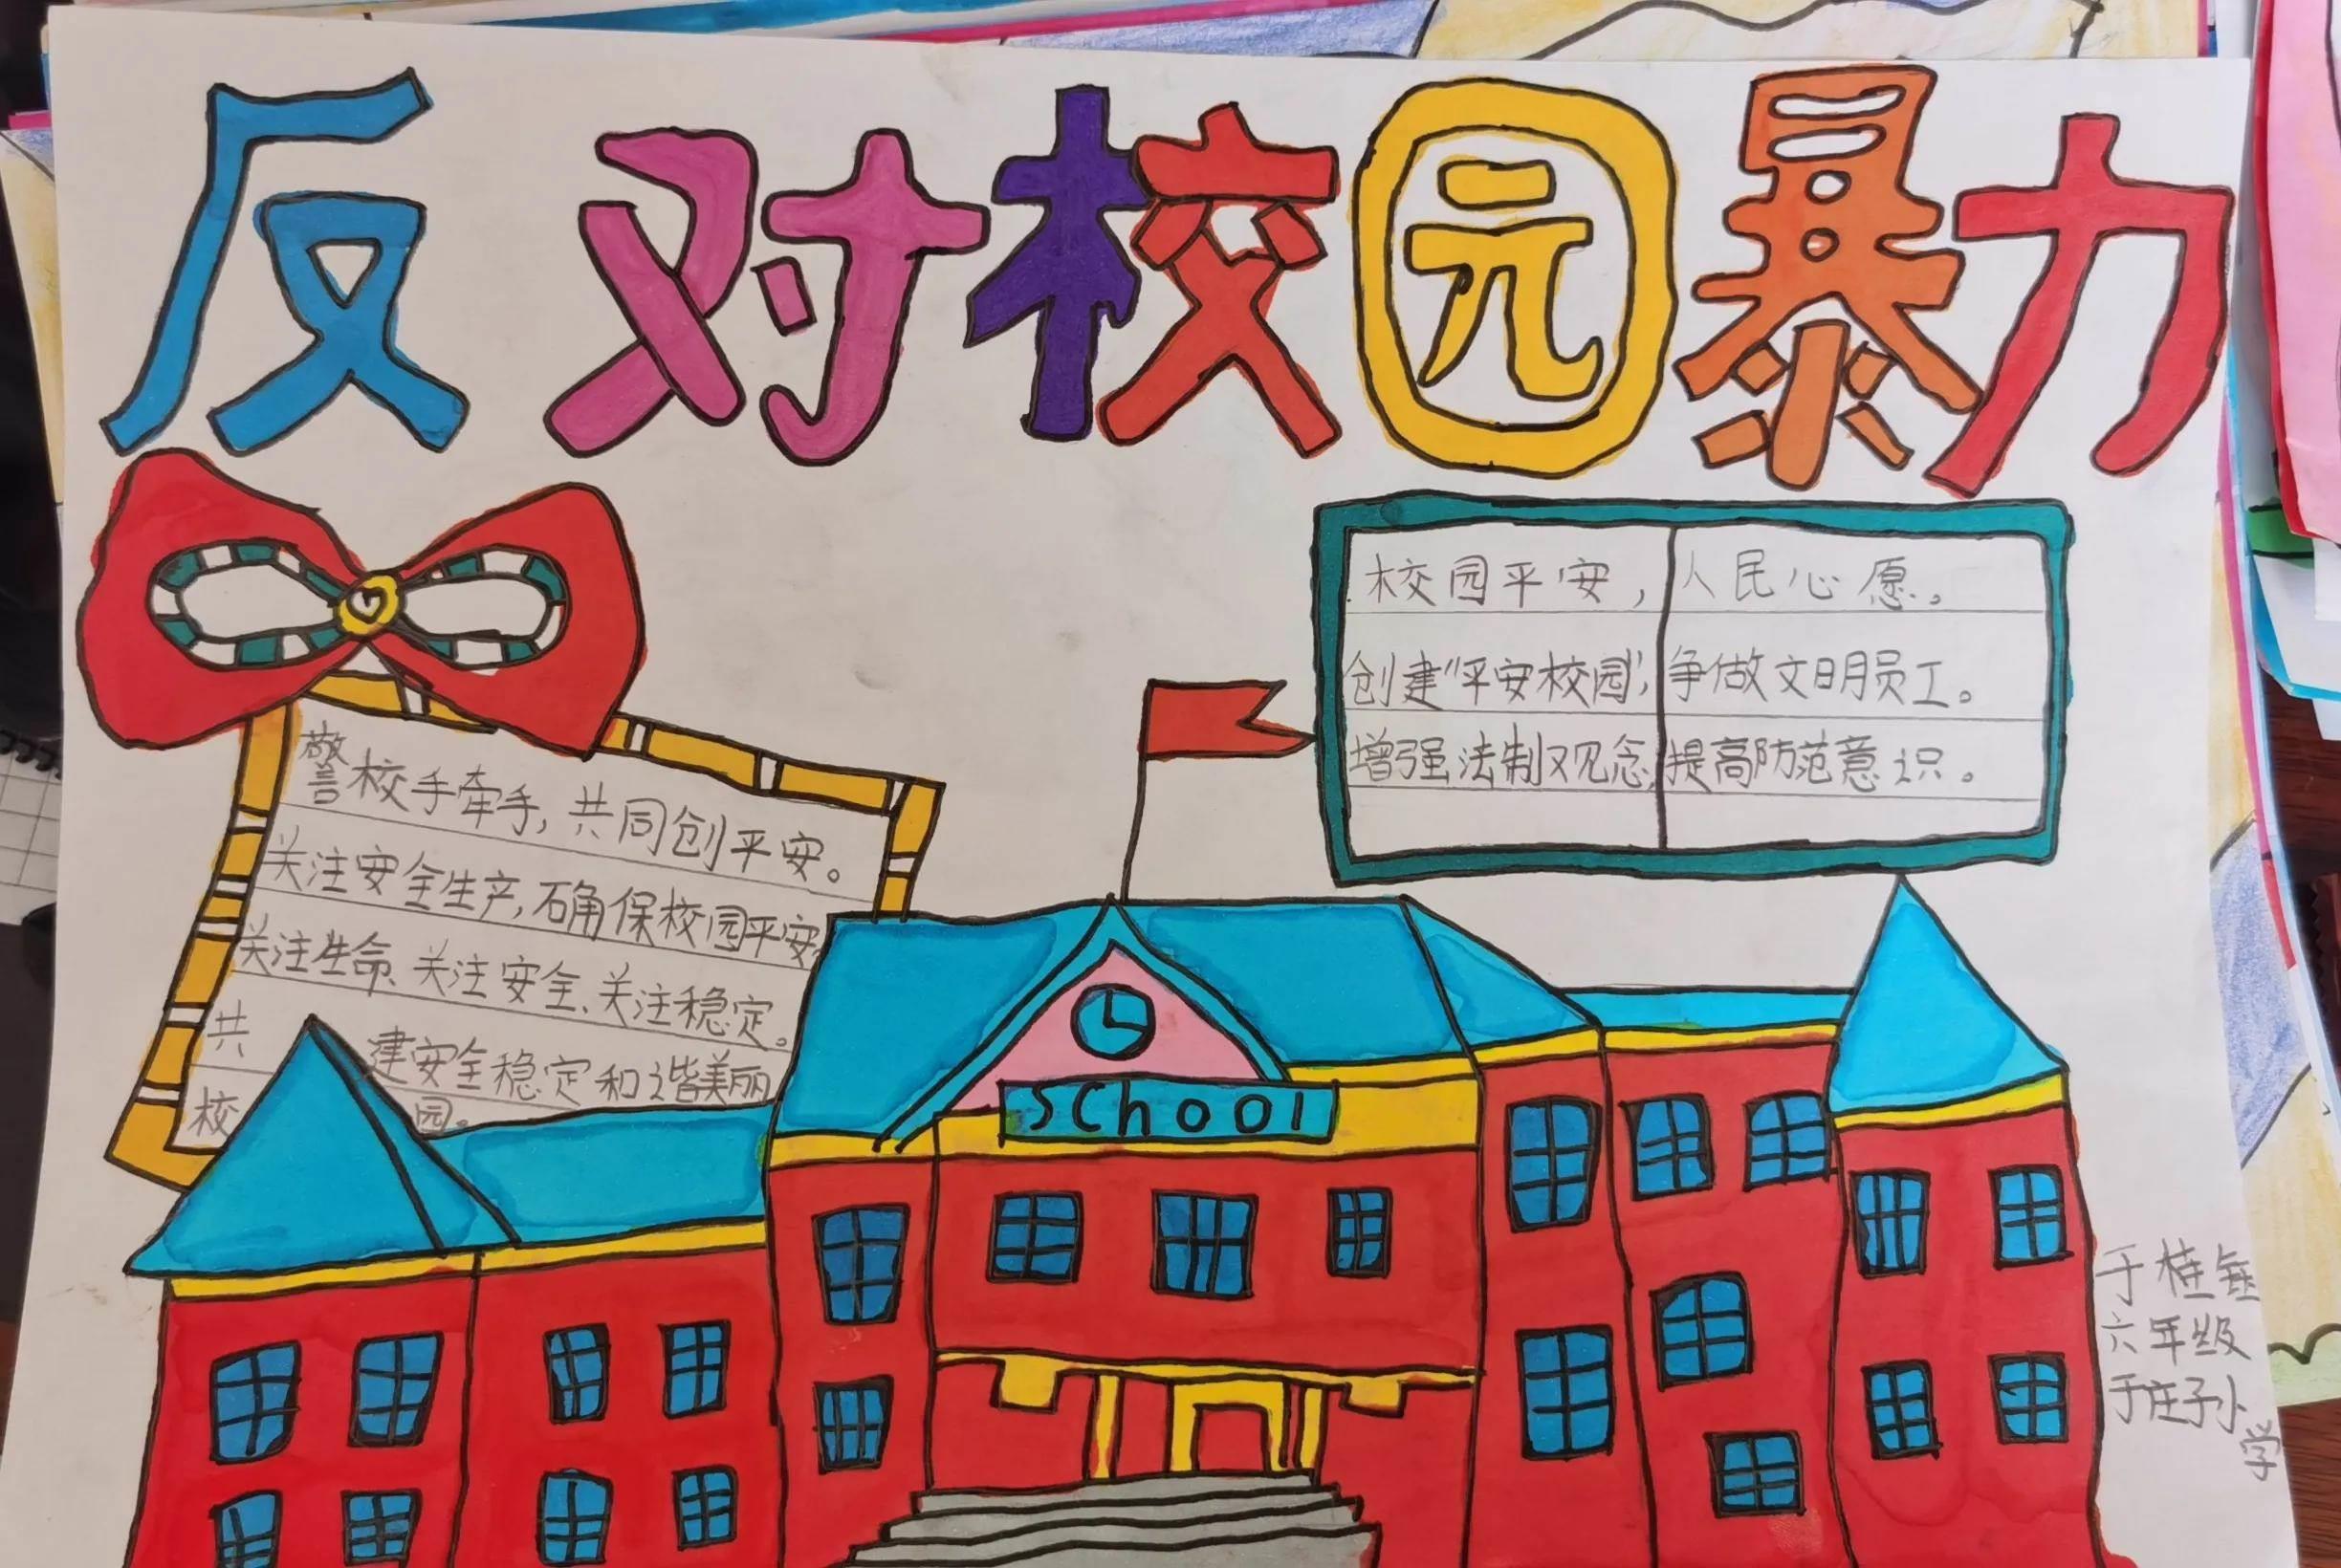 反对校园暴力
校园平安，人民心愿。
创建“平安校园”，争做文明员工。
增强法制观念，提高防范意识。
警校手牵手，共同创平安。
关注安全生产，确保校园平安。
关注生命、关注安全、关注稳定。
共 建安全稳定和谐美丽
校 园。
SChool
于桂
六年级
于庄子小学